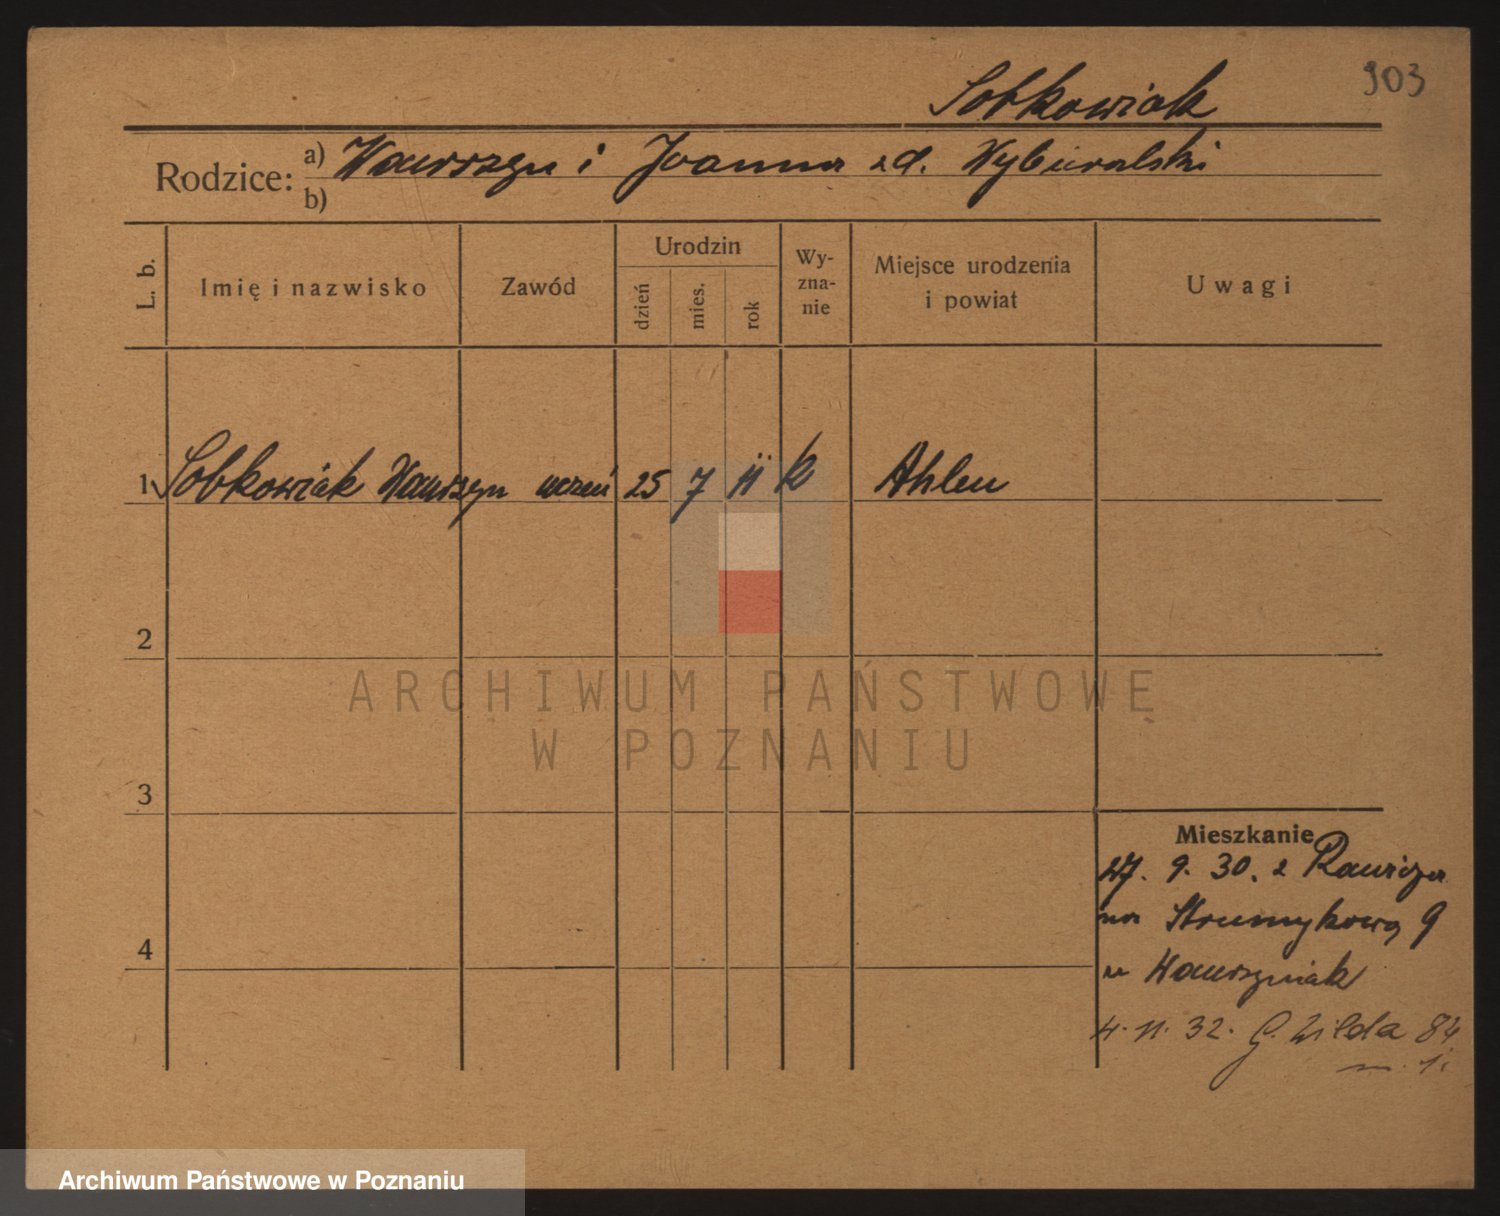 903
Sobkowiak
Rodzice: a) Wawrzyn i Joanna zd. Wybieralski
b)
L. b.
Imię i nazwisko
Zawód
Urodzin
dzień
mies.
rok
Wy-
zna-
nie
Miejsce urodzenia
i powiat
Uwagi
1 Sobkowiak Wawrzyn uczeń 25 7 11 k Ahlen
2
ARCHIWUM PAŃSTWOWE
W POZNANIU
3
Mieszkanie
27. 9. 30. z Rawicza
na Strumykową 9
u Wawrzyniak
4
4. 11. 32. G. Wilda 84
m. 1.
Archiwum Państwowe w Poznaniu